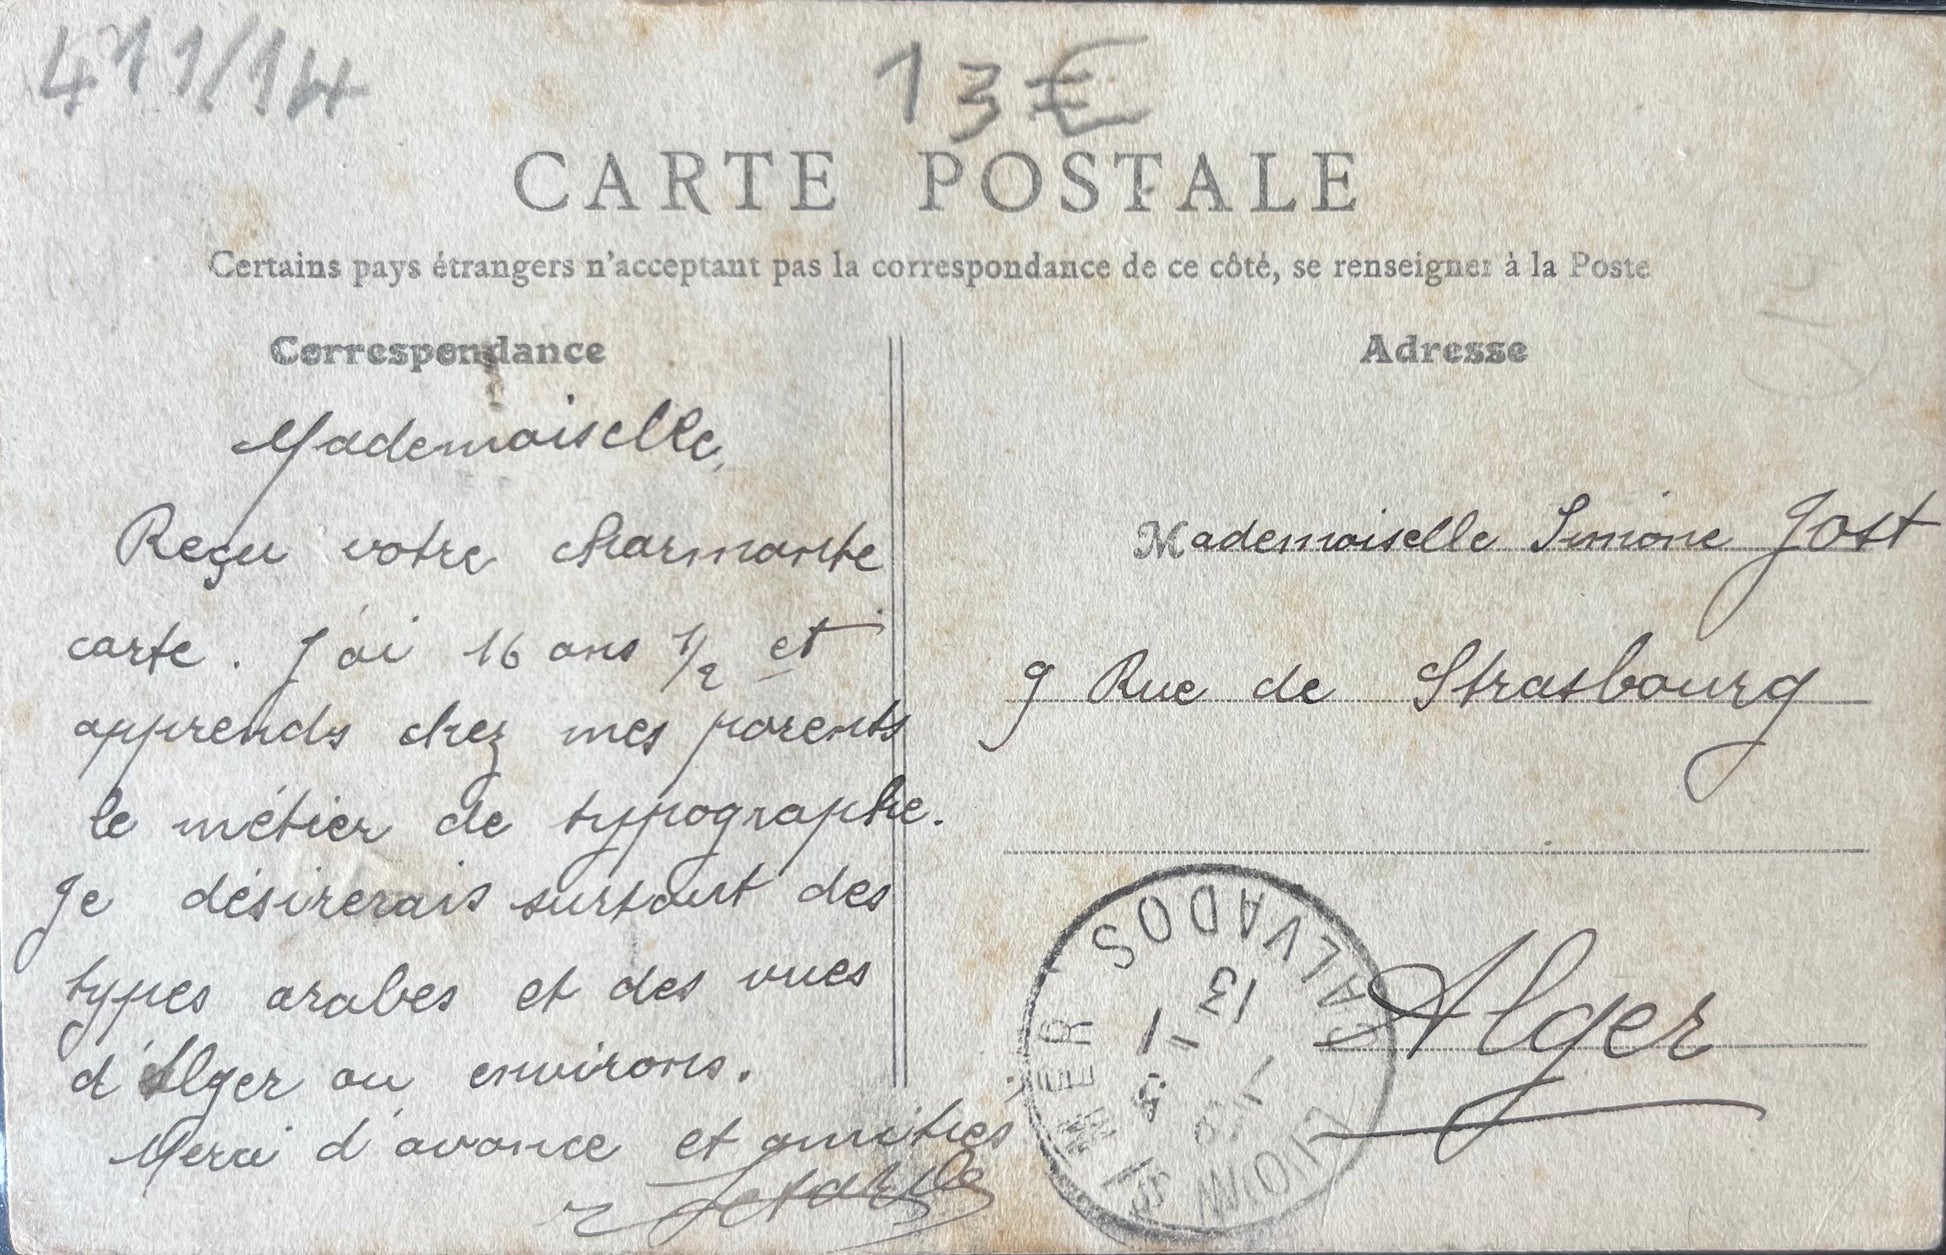 411/14
13€
CARTE POSTALE
Certains pays étrangers n'acceptant pas la correspondance de ce côté, se renseigner à la Poste
Correspondance
Mademoiselle,
Reçu votre charmante
carte. J'ai 16 ans 1/2 et
apprends chez mes parents
le métier de typographe.
Je désirerais surtout des
types arabes et des vues
d'Alger ou environs.
Merci d'avance et amitiés
Adresse
Mademoiselle Simone Jost
9 Rue de Strasbourg
Alger
CALVADOS
13